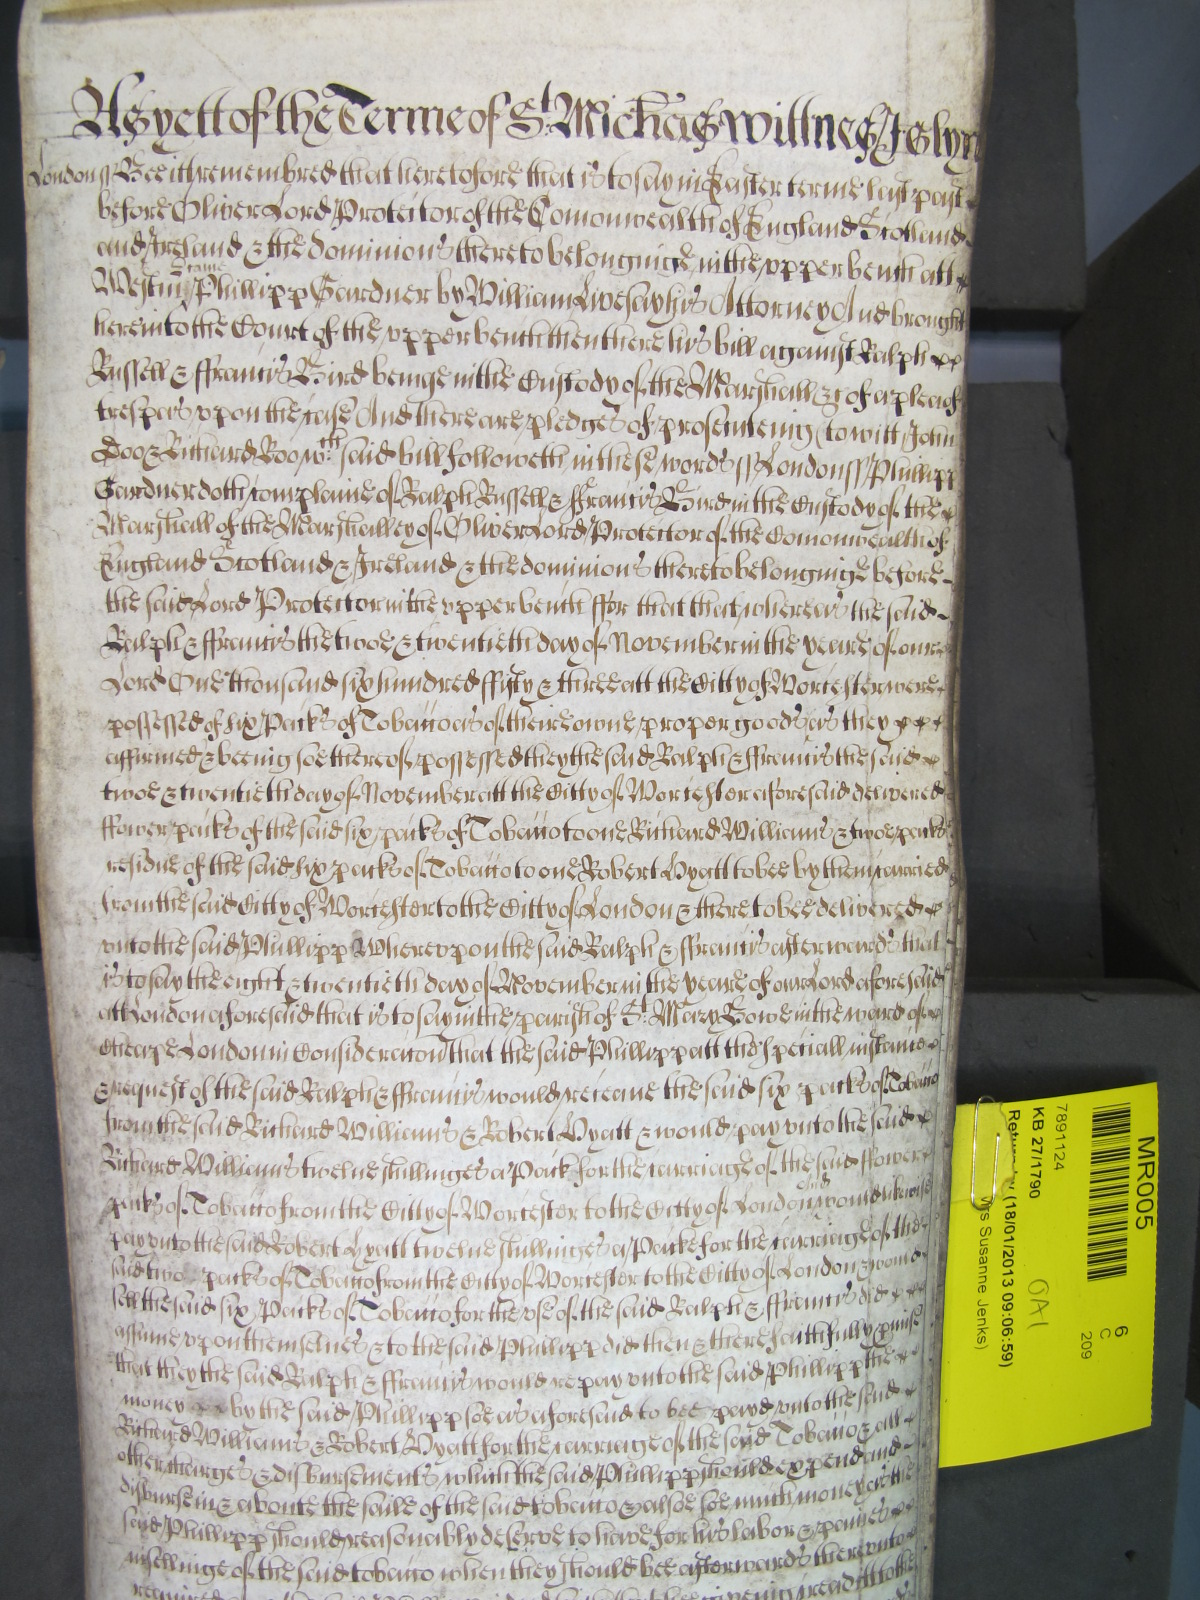 As yett of the Terme of St Michaes Wittnes
London ss Bee it remembred that heretofore that is to say in Easter terme last past
before Oliver Lord Protector of the Comonwealth of England Scotland
and Ireland & the dominions thereto belonginge in the upper bench att
Westmr came Phillipp Gardner by William Livesay his Attorney And brought
here into the Court of the upper bench then there his bill against Ralph
Russell & ffrancis Bird beinge in the Custody of the Marshall &c of a plea of
trespas upon the case And there are pledges of prosecuteing (to witt) John
Doo & Richard Roo wch said bill followeth in these words ss London ss Phillipp
Gardner doth complaine of Ralph Russell & ffrancis Bird in the Custody of the
Marshall of the Marshalley of Oliver Lord Protector of the Comonwealth of
England Scotland & Ireland & the dominions thereto belonginge before
the said Lord Protector in the upper bench ffor that that whereas the said
Ralph & ffrancis the twoe & twentieth day of November in the yeare of oure
Lord One thousand six hundred ffifty & three att the Citty of Worcester were
possessed of six Packs of Tobacco as of theire owne proper goods as they
affirmed & beeing soe thereof possessed they the said Ralph & ffrancis the said
twoe & twentieth day of November att the Citty of Worcester aforesaid delivered
ffower packs of the said six packs of Tobacco to one Richard Williams & twoe packs
residue of the said six packs of Tobacco to one Robert Hyatt to bee by them carried
from the said Citty of Worcester to the Citty of London & there to bee delivered
unto the said Phillipp Whereupon the said Ralph & ffrancis afterwards that
is to say the eight & twentieth day of November in the yeare of our Lord aforesaid
att London aforesaid that is to say in the parish of St Mary Bowe in the ward of
Cheape London in Consideracon that the said Phillipp att the speciall instance
& request of the said Ralph & ffrancis would receave the said six packs of Tobacco
from the said Richard Williams & Robert Hyatt & would pay unto the said
Richard Williams twelve shillinges a Pack for the carriage of the said ffower
packs of Tobacco from the Citty of Worcester to the Citty of London and would likewise
pay unto the said Robert Hyatt twelve shillinges a Packe for the carriage of the
said two packs of Tobacco from the Citty of Worcester to the Citty of London & would
sell the said six Packs of Tobacco for the use of the said Ralph & ffrancis did
assume upon themselves & to the said Phillipp did then & there faithfully pmise
that they the said Ralph & ffrancis would repay unto the said Phillipp the
money by the said Phillipp soe as aforesaid to bee payd unto the said
Richard Williams & Robert Hyatt for the carriage of the said Tobacco & all
other charges & disbursements which the said Phillipp should expend and
disburse in & aboute the saile of the said tobacco & alsoe soe much money as the
said Phillipp should reasonably deserve to have for his labor & paines
in sellinge of the said tobacco when they should bee afterwards thereunto
required
MR005
6
C
209
7891124
KB 27/1790
(18/01/2013 09:06:59)
Mrs Susanne Jenks)
OA1